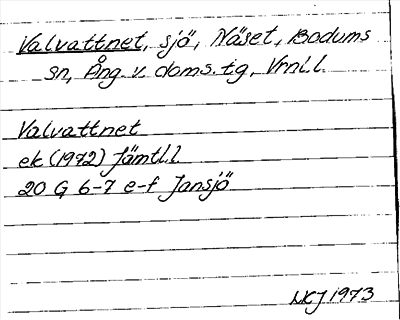 Valvattnet, sjö, Näset, Bodums
sn, Ång. v. doms. tg, Vrnl.l.
Valvattnet
ek (1972) Jämtl.l
20 G 6-7 e-f Jansjö
LKJ 1973